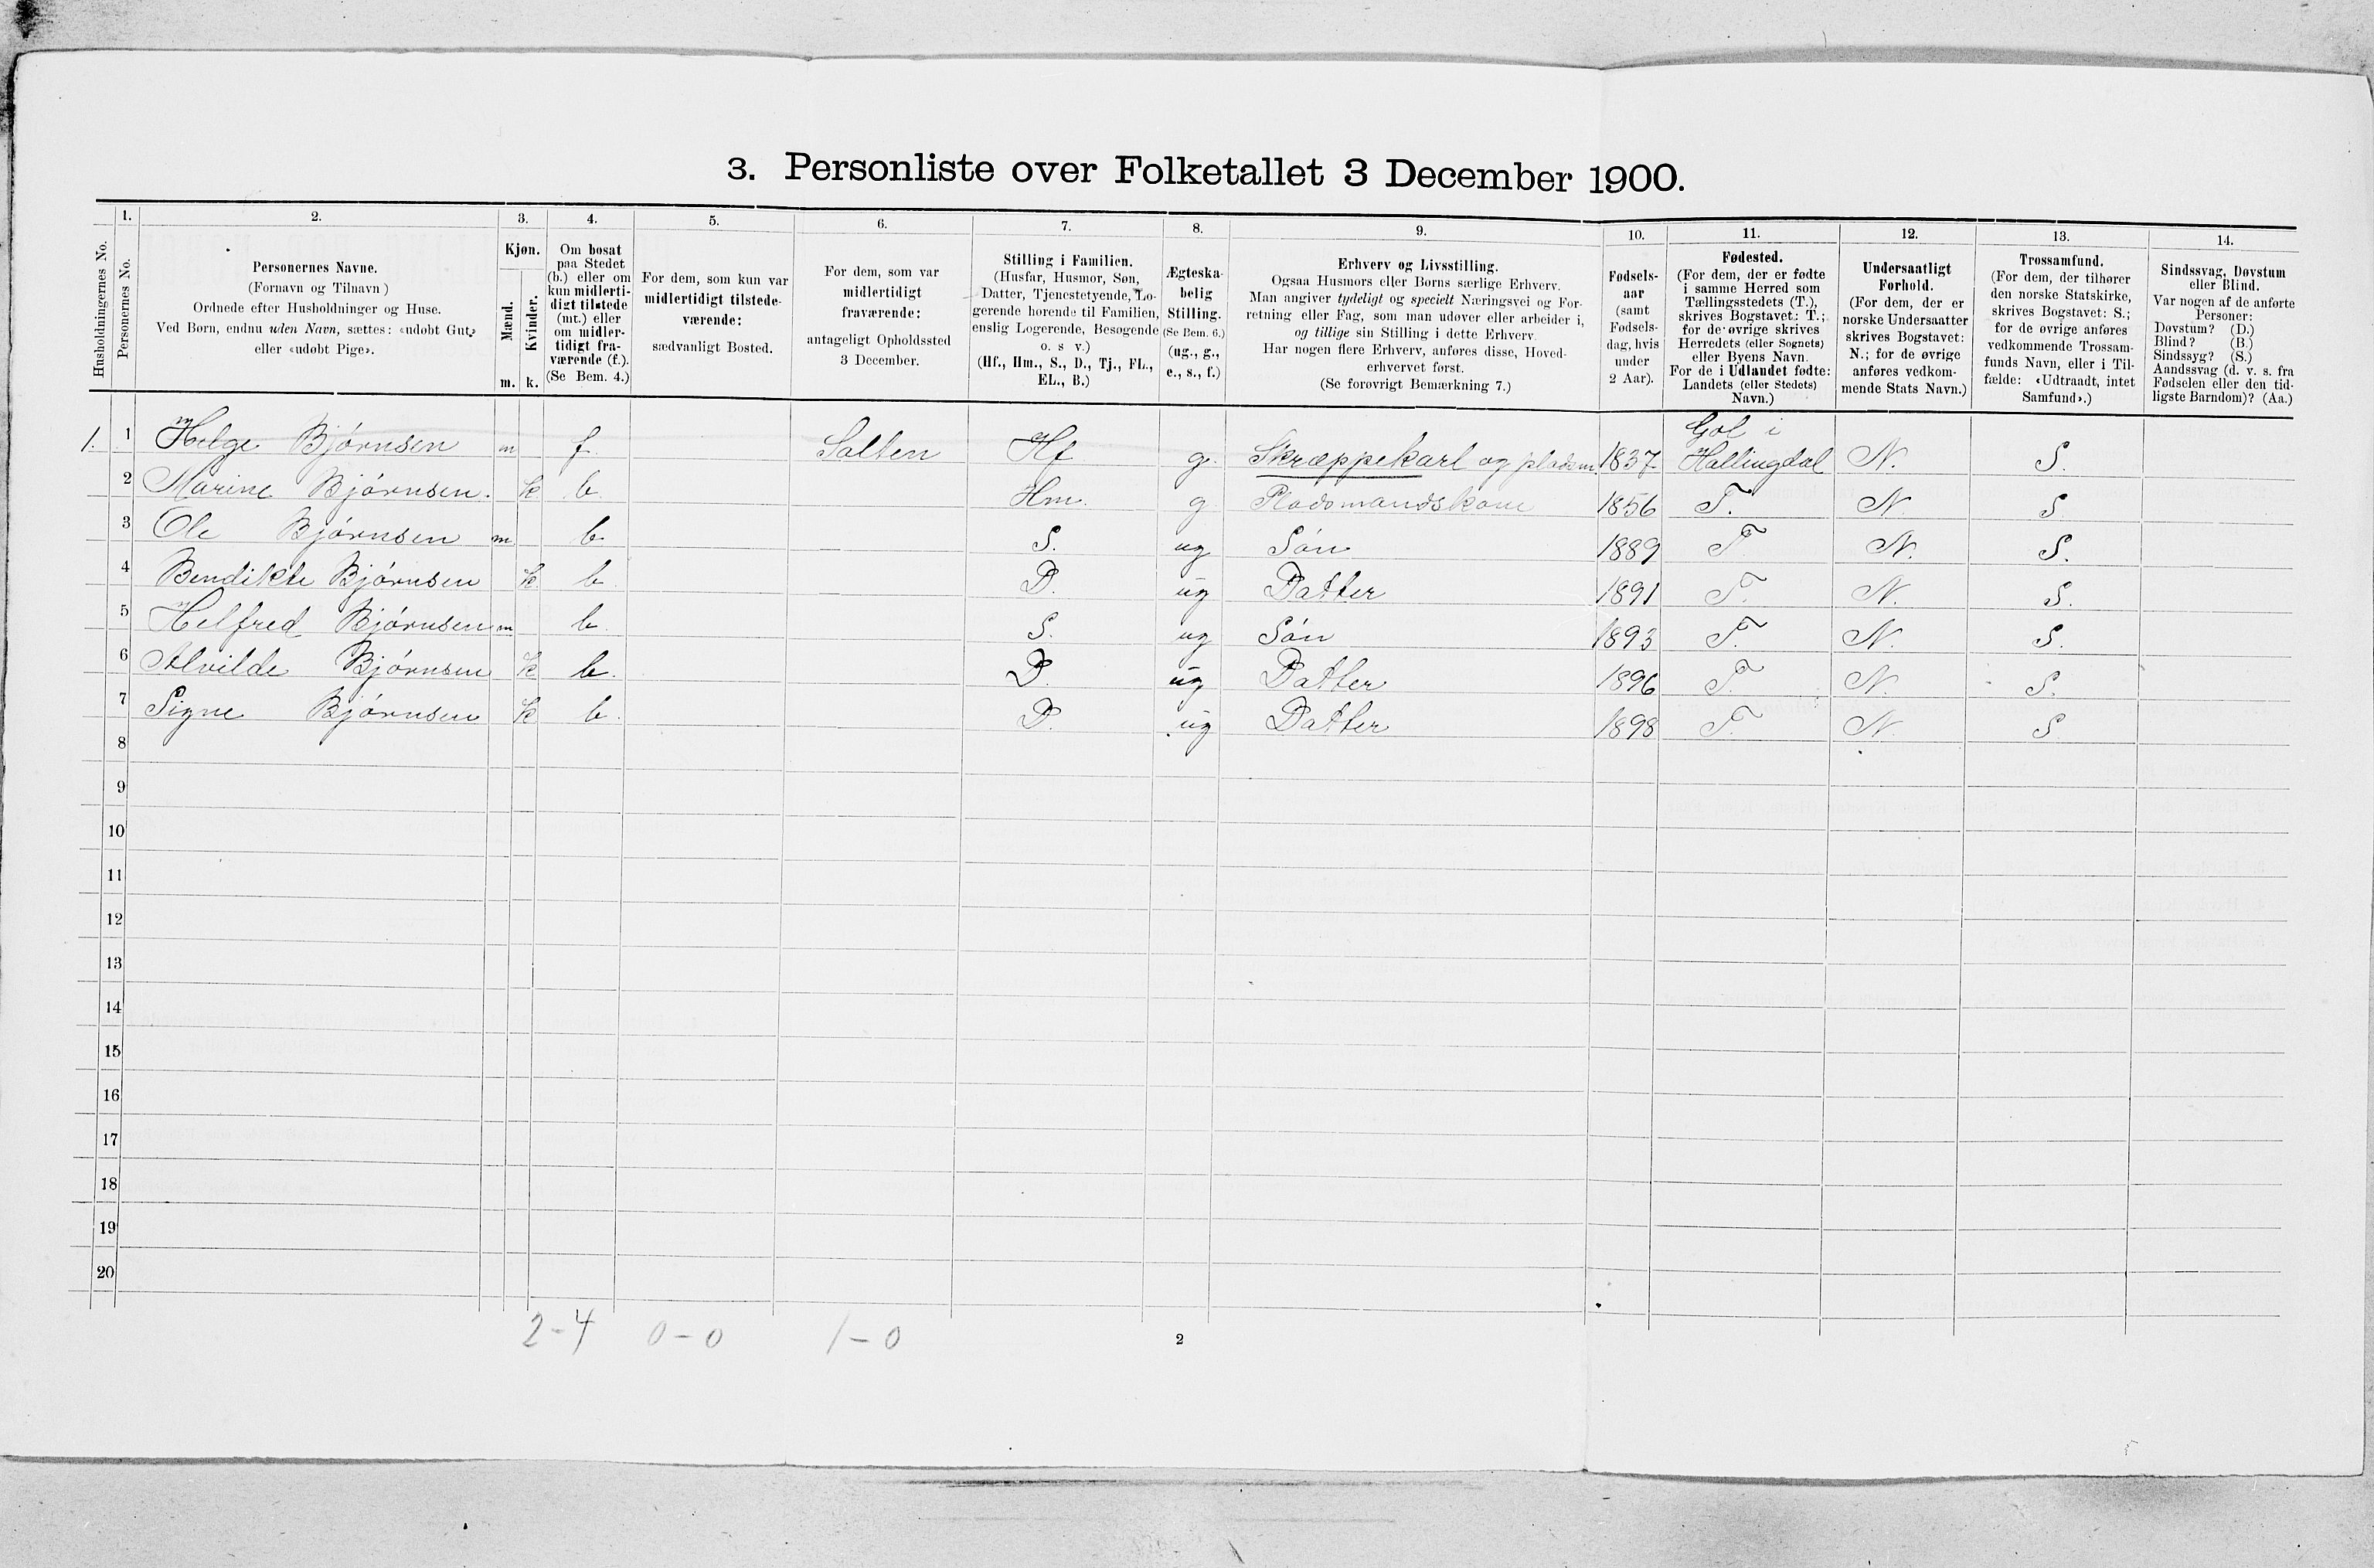 3. Personliste over Folketallet 3 December 1900.
Husholdningernes No.
1.
Personernes No.
2.
Personernes Navne.
(Fornavn og Tilnavn)
Ordnede efter Husholdninger og Huse.
Ved Børn, endnu uden Navn, sættes: «udøbt Gut»
eller «udøbt Pige».
3.
Kjøn.
Mænd.
m.
Kvinder.
k.
4.
Om bosat
paa Stedet
(b.) eller om
kun midlerti-
digt tilstede
(mt.) eller
om midler-
tidigt fra-
værende (f.).
(Se Bem. 4.)
5.
For dem, som kun var
midlertidigt tilstede-
værende:
sædvanligt Bosted.
6.
For dem, som var
midlertidigt
fraværende:
antageligt Opholdssted
3 December.
7.
Stilling i Familien.
(Husfar, Husmor, Søn,
Datter, Tjenestetyende, Lo-
gerende hørende til Familien,
enslig Logerende, Besøgende
o. s v.)
(Hf., Hm., S., D., Tj., FL.,
EL., B.)
8.
Ægteska-
belig
Stilling.
(Se Bem. 6.)
(ug., g.,
e., s., f.)
9.
Erhverv og Livsstilling.
Ogsaa Husmors eller Børns særlige Erhverv.
Man angiver tydeligt og specielt Næringsvei og For-
retning eller Fag, som man udøver eller arbeider i,
og tillige sin Stilling i dette Erhverv.
Har nogen flere Erhverv, anføres disse, Hoved-
erhvervet først.
(Se forøvrigt Bemærkning 7.)
10.
Fødsels-
aar
(samt
Fødsels-
dag, hvis
under
2 Aar).
11.
Fødested.
(For dem, der er fødte
i samme Herred som
Tællingsstedets (T.),
skrives Bogstavet: T.;
for de øvrige skrives
Herredets (eller Sognets)
eller Byens Navn.
For de i Udlandet fødte:
Landets (eller Stedets)
Navn.)
12.
Undersaatligt
Forhold.
(For dem, der er
norske Undersaatter
skrives Bogstavet:
N.; for de øvrige
anføres vedkom-
mende Stats Navn.)
13.
Trossamfund.
(For dem, der tilhører
den norske Statskirke,
skrives Bogstavet: S.;
for de øvrige anføres
vedkommende Trossam-
funds Navn, eller i Til-
fælde: «Udtraadt, intet
Samfund».)
14.
Sindssvag, Døvstum
eller Blind.
Var nogen af de anførte
Personer:
Døvstum? (D.)
Blind? (B.)
Sindssyg? (S.)
Aandssvag (d. v. s. fra
Fødselen eller den tid-
ligste Barndom)? (Aa.)
1. 1 Helge Bjørnsen m f Salten Hf g. Skræppekarl og pladsm. 1837 Gol i
Hallingdal N. S.
2 Marine Bjørnsen. k b. Hm. g Pladsmandskone 1856 T. N S
3 Ole Bjørnsen m b S. ug Søn 1889 T N. S.
4 Bendikte Bjørnsen k. b. D. ug Datter 1891 T. N. S.
5 Helfred Bjørnsen m b. S. ug Søn 1893 T. N. S.
6 Alvilde Bjørnsen k b. D. ug Datter 1896 T. N. S.
7 Signe Bjørnsen k b. D. ug Datter 1898 T. N. S
8
9
10
11
12
13
14
15
16
17
18
19
20
2-4 0-0 1-0
2